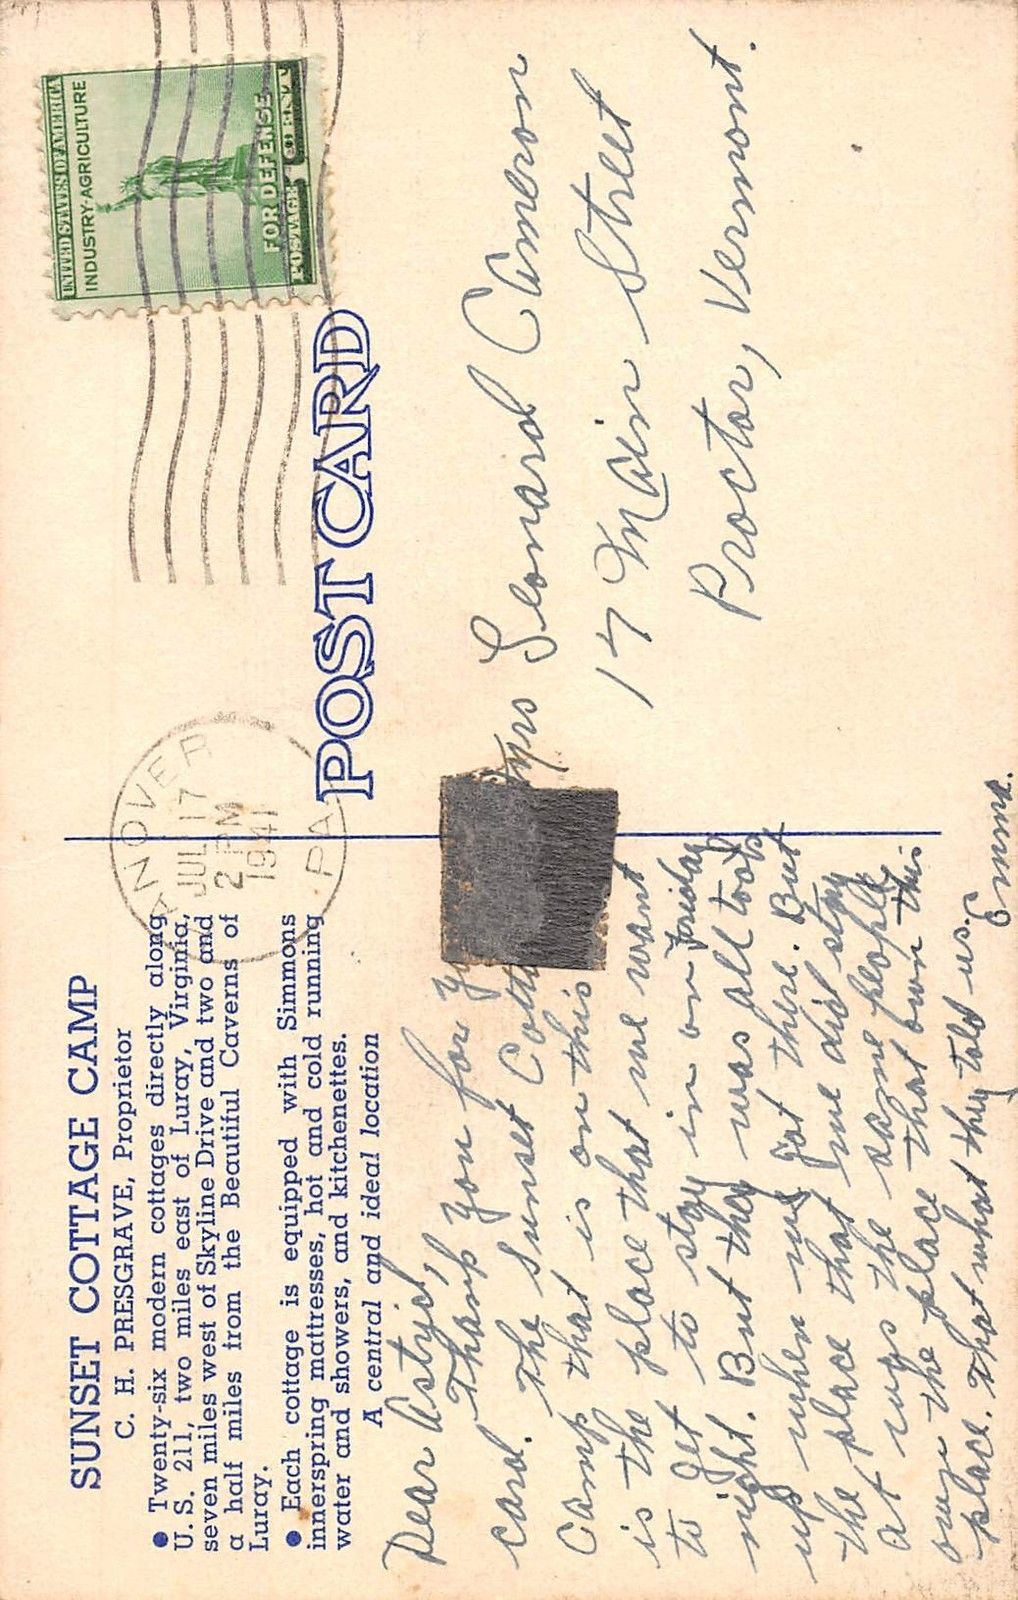 SUNSET COTTAGE CAMP
C. H. PRESGRAVE, Proprietor
● Twenty-six modern cottages directly along
U. S. 211, two miles east of Luray, Virginia,
seven miles west of Skyline Drive and two and
a half miles from the Beautiful Caverns of
Luray.
● Each cottage is equipped with Simmons
innerspring mattresses, hot and cold running
water and showers, and kitchenettes.
A central and ideal location
Dear Astrid,
Thank you for
card. The Sunset
Camp that is on this
is the place that we want
to get to stay in on Friday
night. But they was all took
up when we got there. But
the place that we did stay
at was the same people
own the place that own this
place. That what they told us.
Emma.
ANOVER
JUL 17
2 PM
1941
PA
POST CARD
UNITED STATES OF AMERICA
INDUSTRY-AGRICULTURE
FOR DEFENSE
POSTAGE
Leonard Cameron
17 Main Street
Proctor, Vermont.